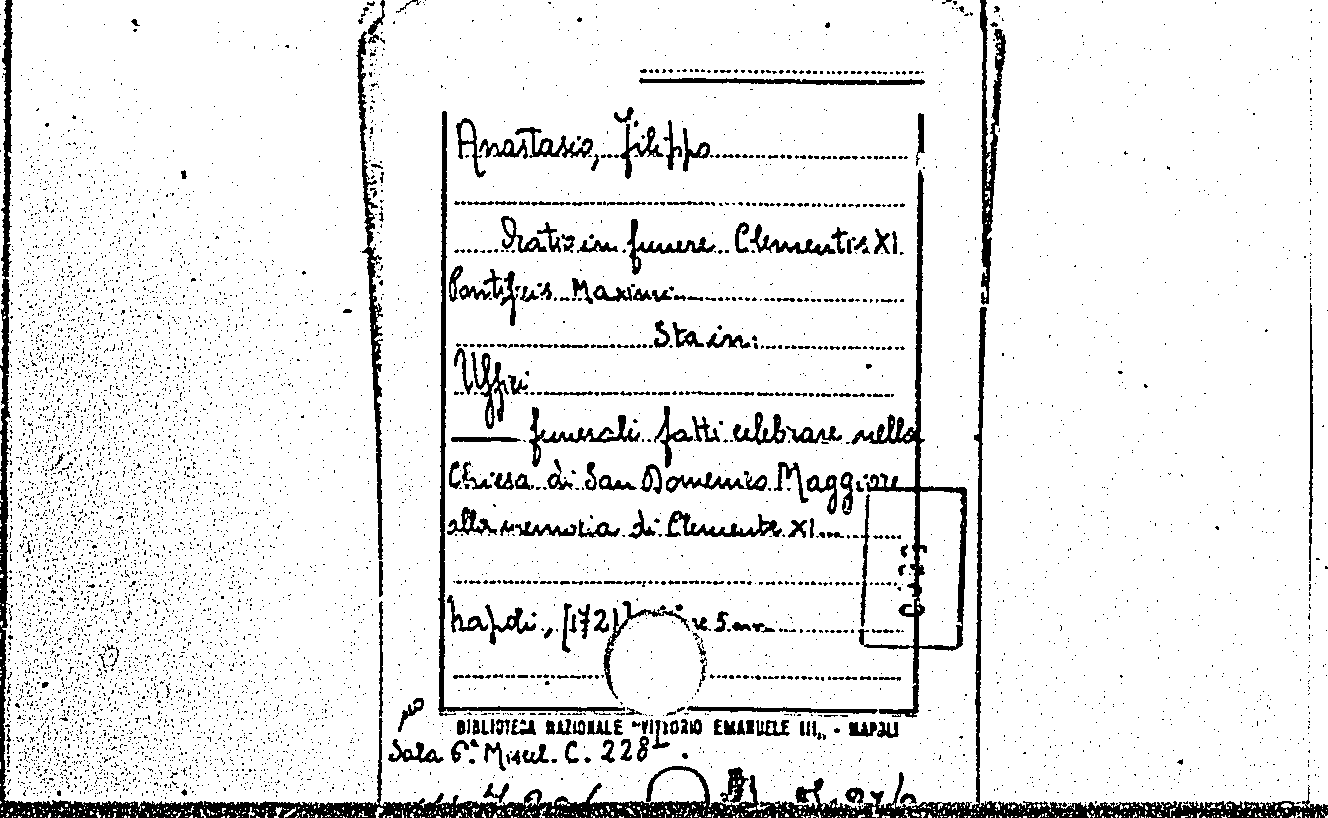 Anastasio, Filippo
Oratio in funere Clementis XI
Pontificis Maximi
Sta in:
Uffici
funerali fatti celebrare nella
Chiesa di San Domenico Maggiore
alla memoria di Clemente XI...
Napoli, [172]
BIBLIOTECA NAZIONALE "VITTORIO EMANUELE III„ - NAPOLI
Sala 6ª. Miscel. C. 228